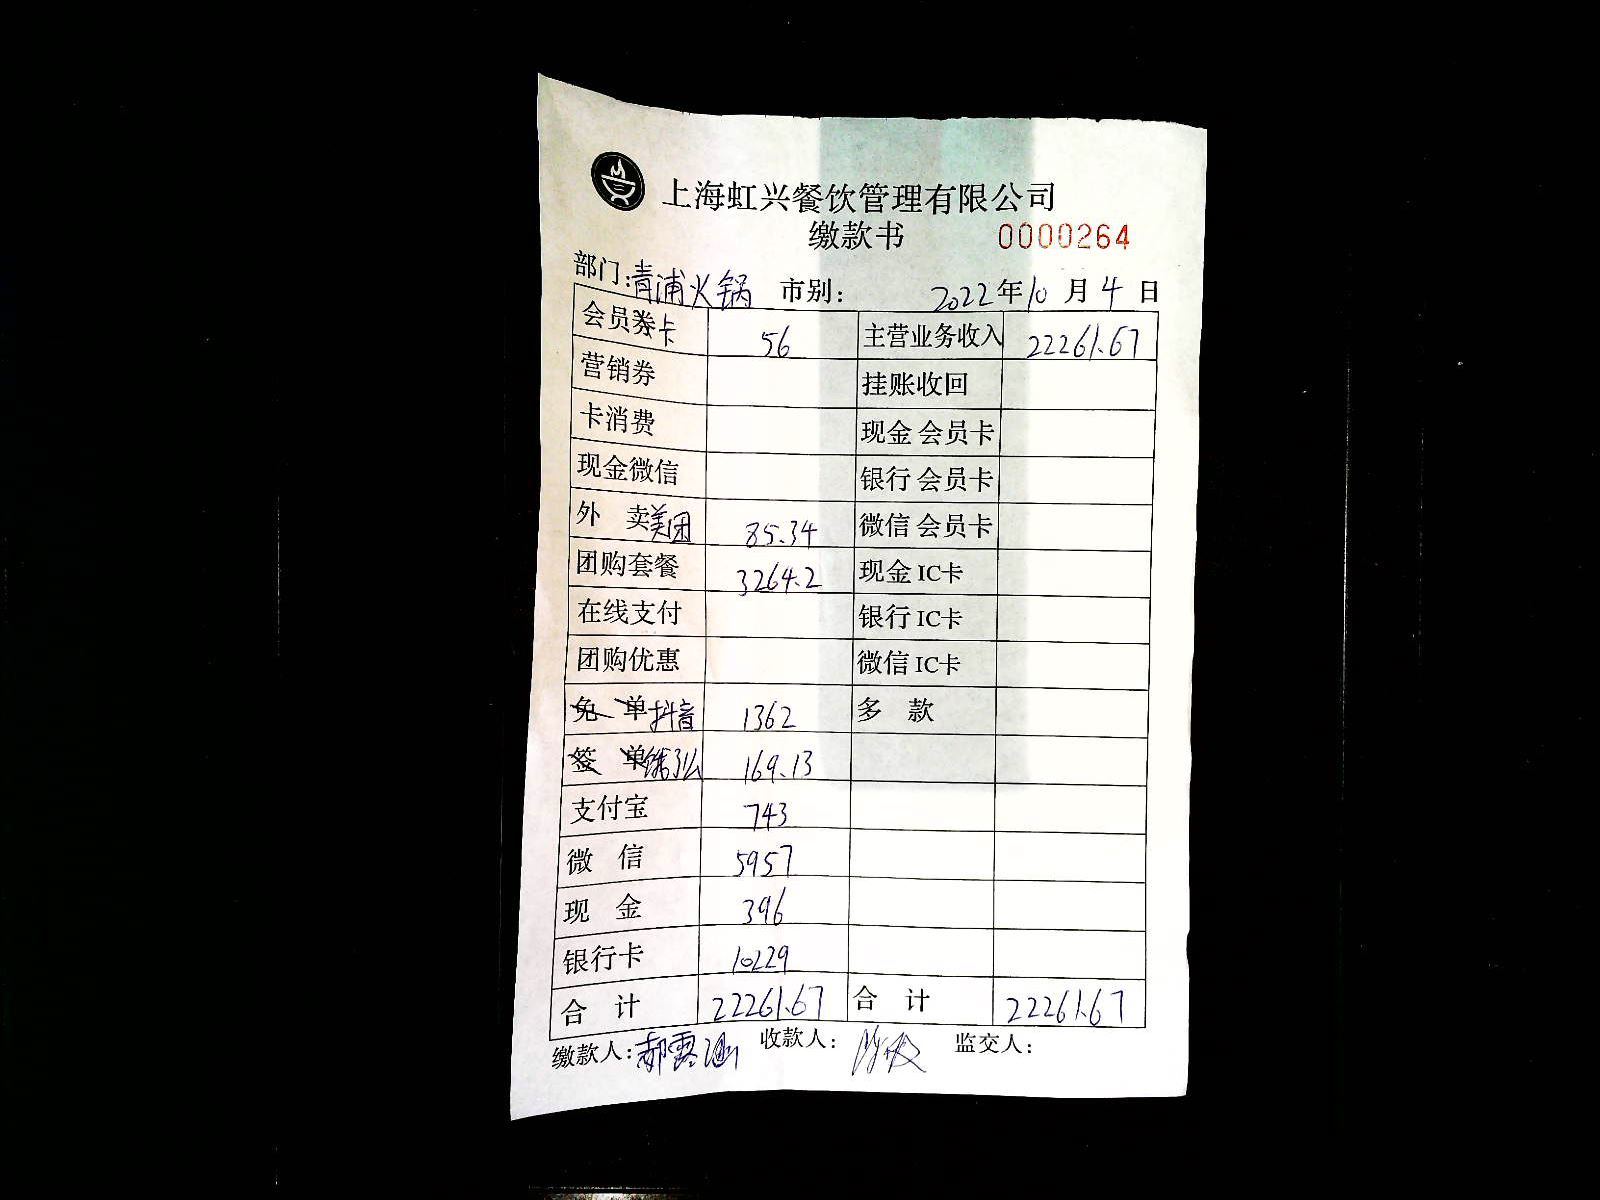 上海虹兴餐饮管理有限公司
缴款书 0000264
部门:青浦火锅 市别: 2022年10月4日
会员券卡 56 主营业务收入 22261.67
营销券 挂账收回
卡消费 现金会员卡
现金微信 银行会员卡
外 卖美团 85.34 微信会员卡
团购套餐 3264.2 现金IC卡
在线支付 银行IC卡
团购优惠 微信IC卡
免 单抖音 1362 多 款
签 单饿了么 169.13
支付宝 743
微 信 5957
现 金 396
银行卡 10229
合 计 22261.67 合 计 22261.67
缴款人:郝露涵 收款人: 监交人: